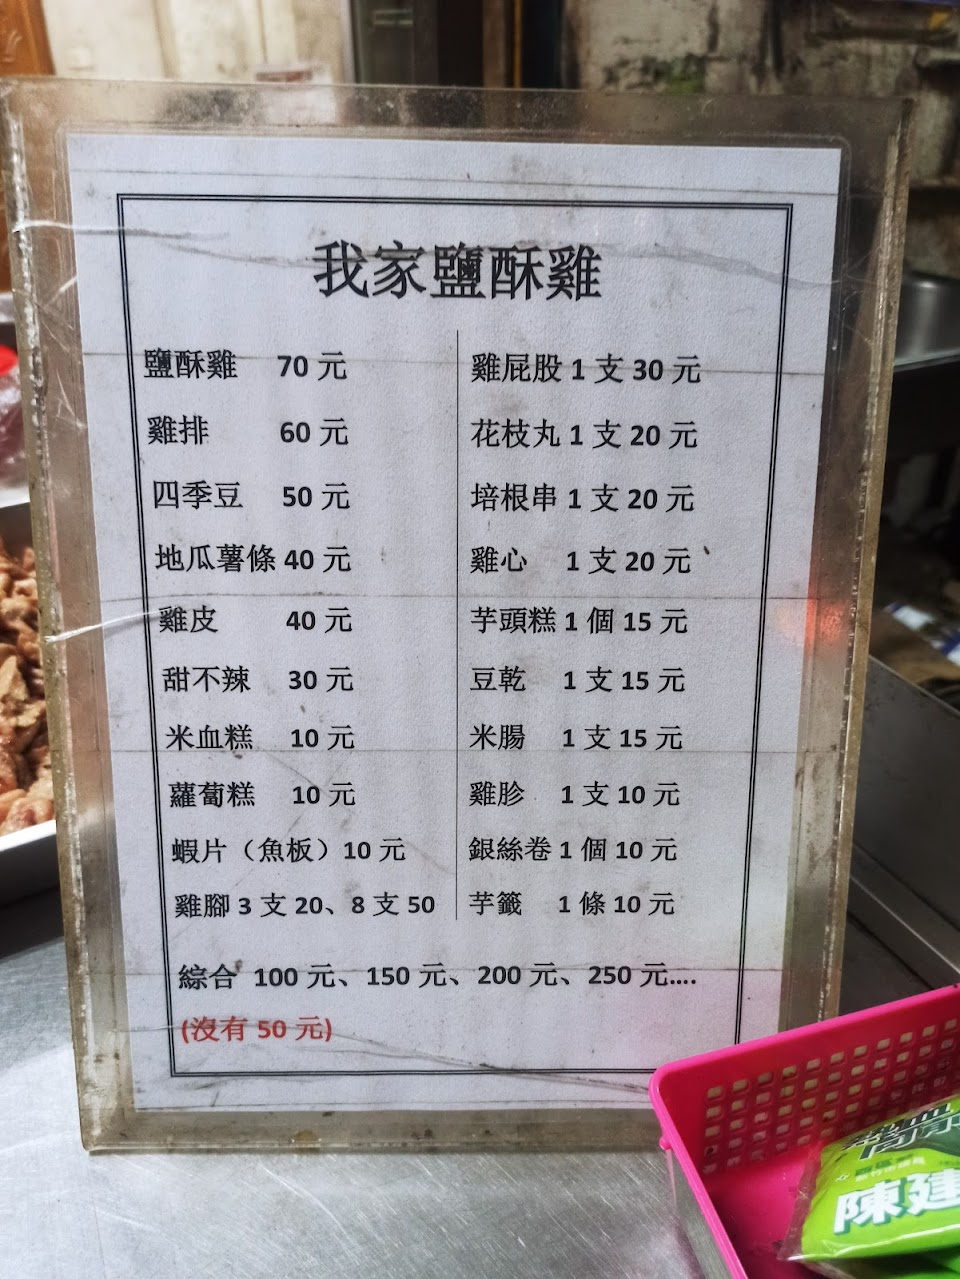 我家鹽酥雞
鹽酥雞 70 元
雞排 60 元
四季豆 50 元
地瓜薯條 40 元
雞皮 40 元
甜不辣 30 元
米血糕 10 元
蘿蔔糕 10 元
蝦片（魚板）10 元
雞腳 3 支 20、8 支 50
雞屁股 1 支 30 元
花枝丸 1 支 20 元
培根串 1 支 20 元
雞心 1 支 20 元
芋頭糕 1 個 15 元
豆乾 1 支 15 元
米腸 1 支 15 元
雞胗 1 支 10 元
銀絲卷 1 個 10 元
芋籤 1 條 10 元
綜合 100 元、150 元、200 元、250 元....
(沒有 50 元)
陳建